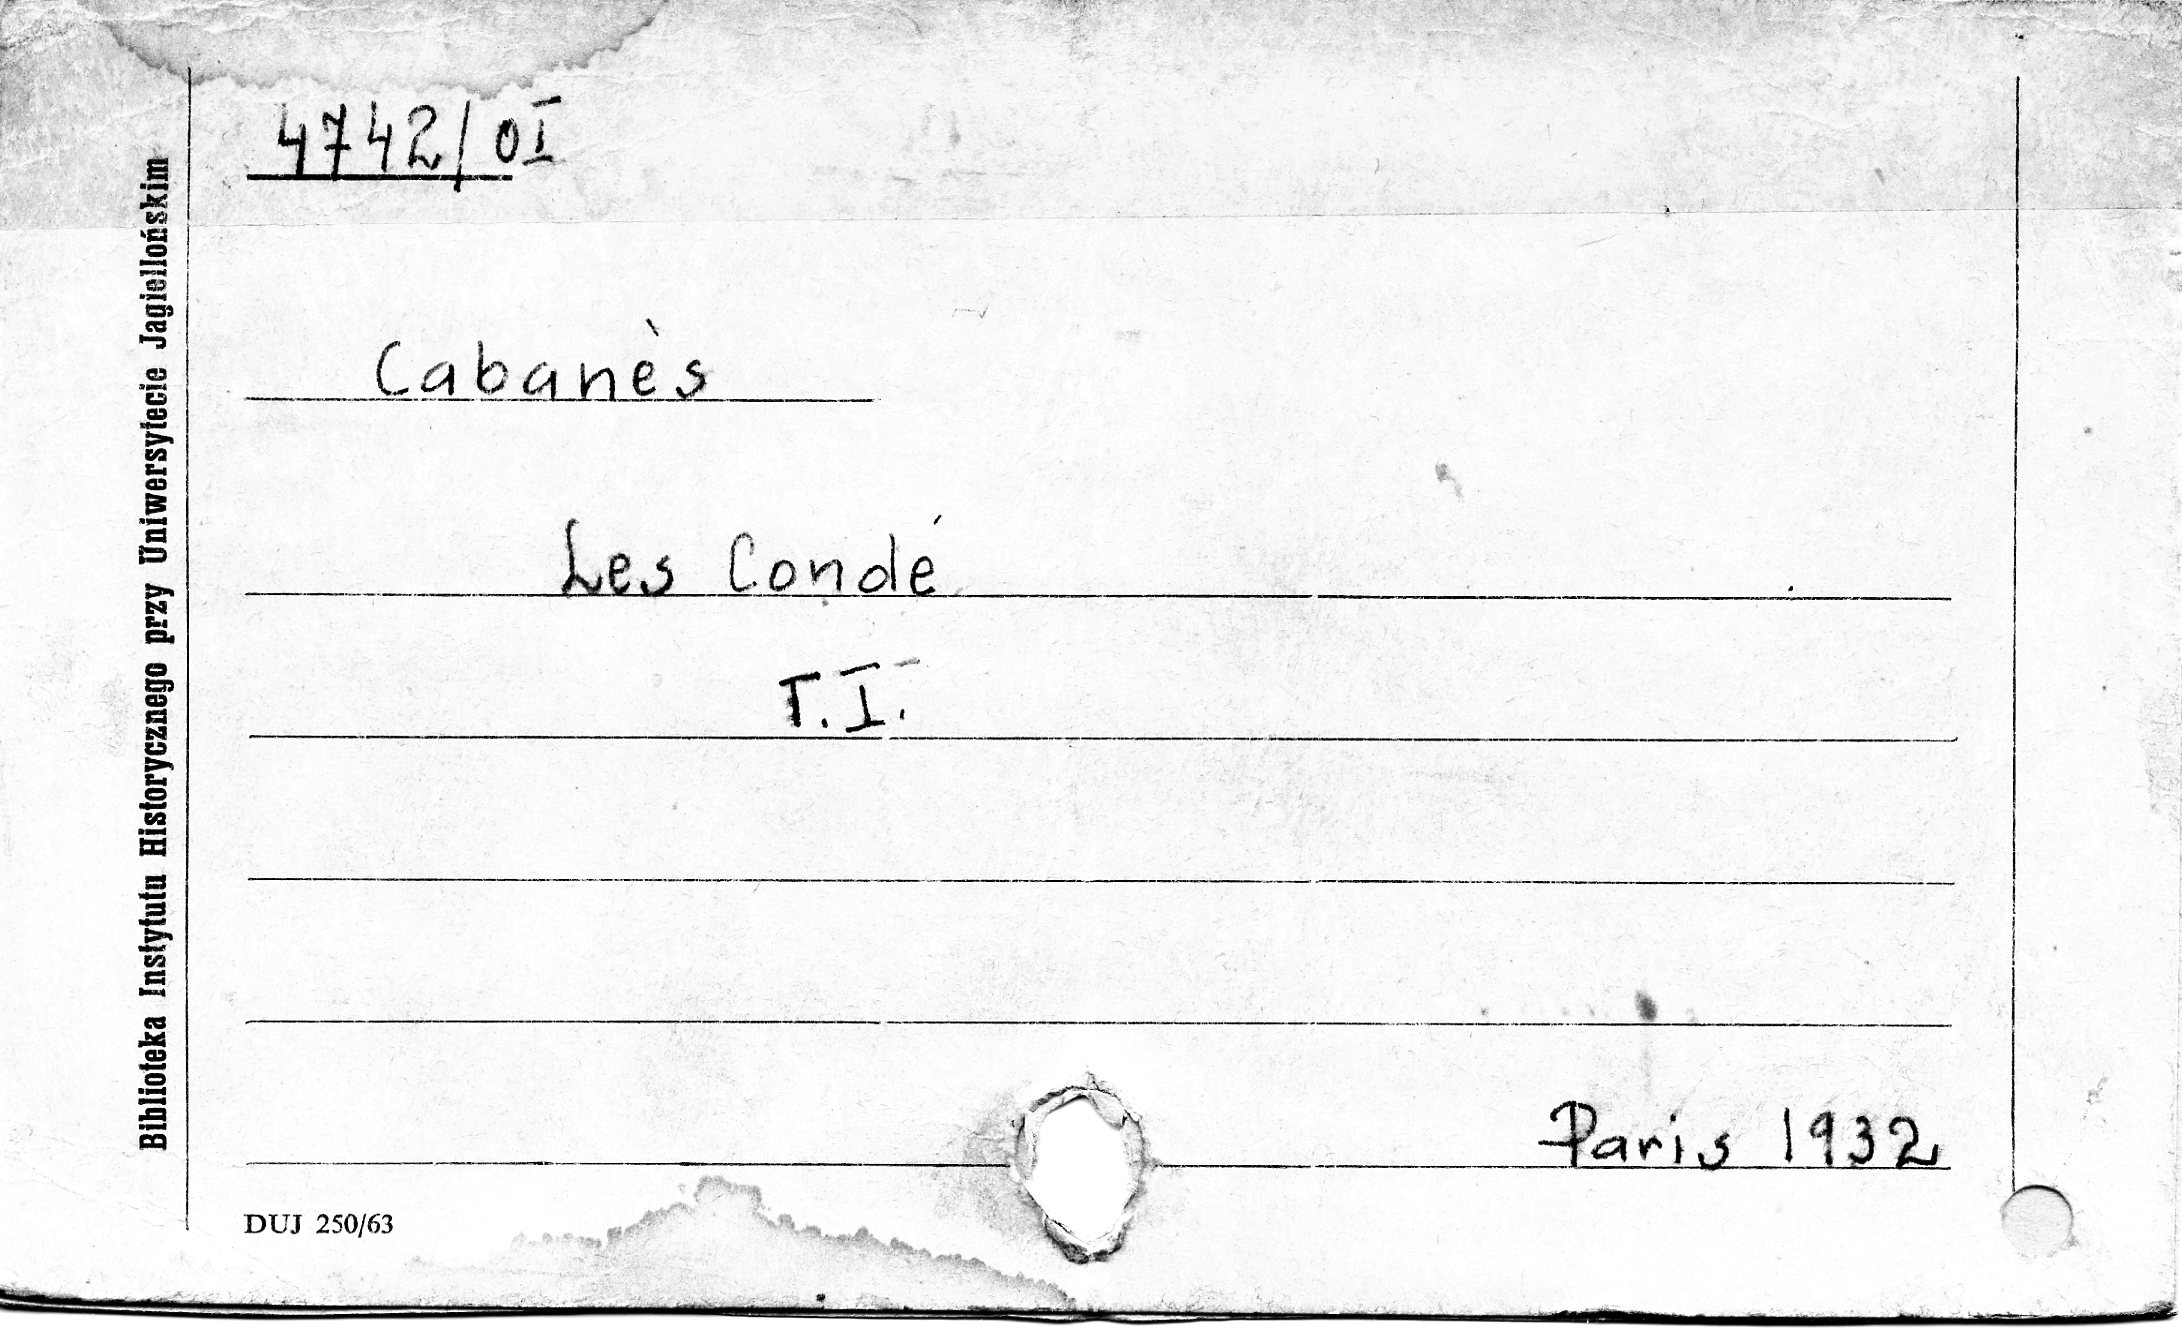 4742/OI
Cabanès
Les Condé
T.I.
Paris 1932
DUJ 250/63
Biblioteka Instytutu Historycznego przy Uniwersytecie Jagiellońskim